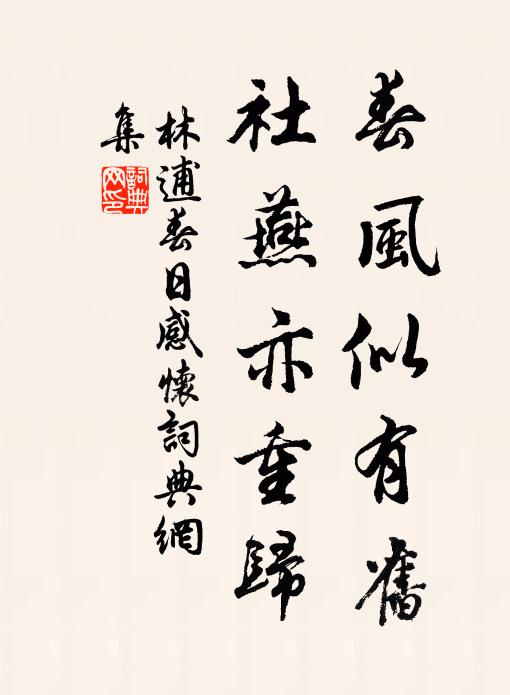 春風似有舊
社燕亦重歸
林逋春日感懷詞典網
集
詞典
网印